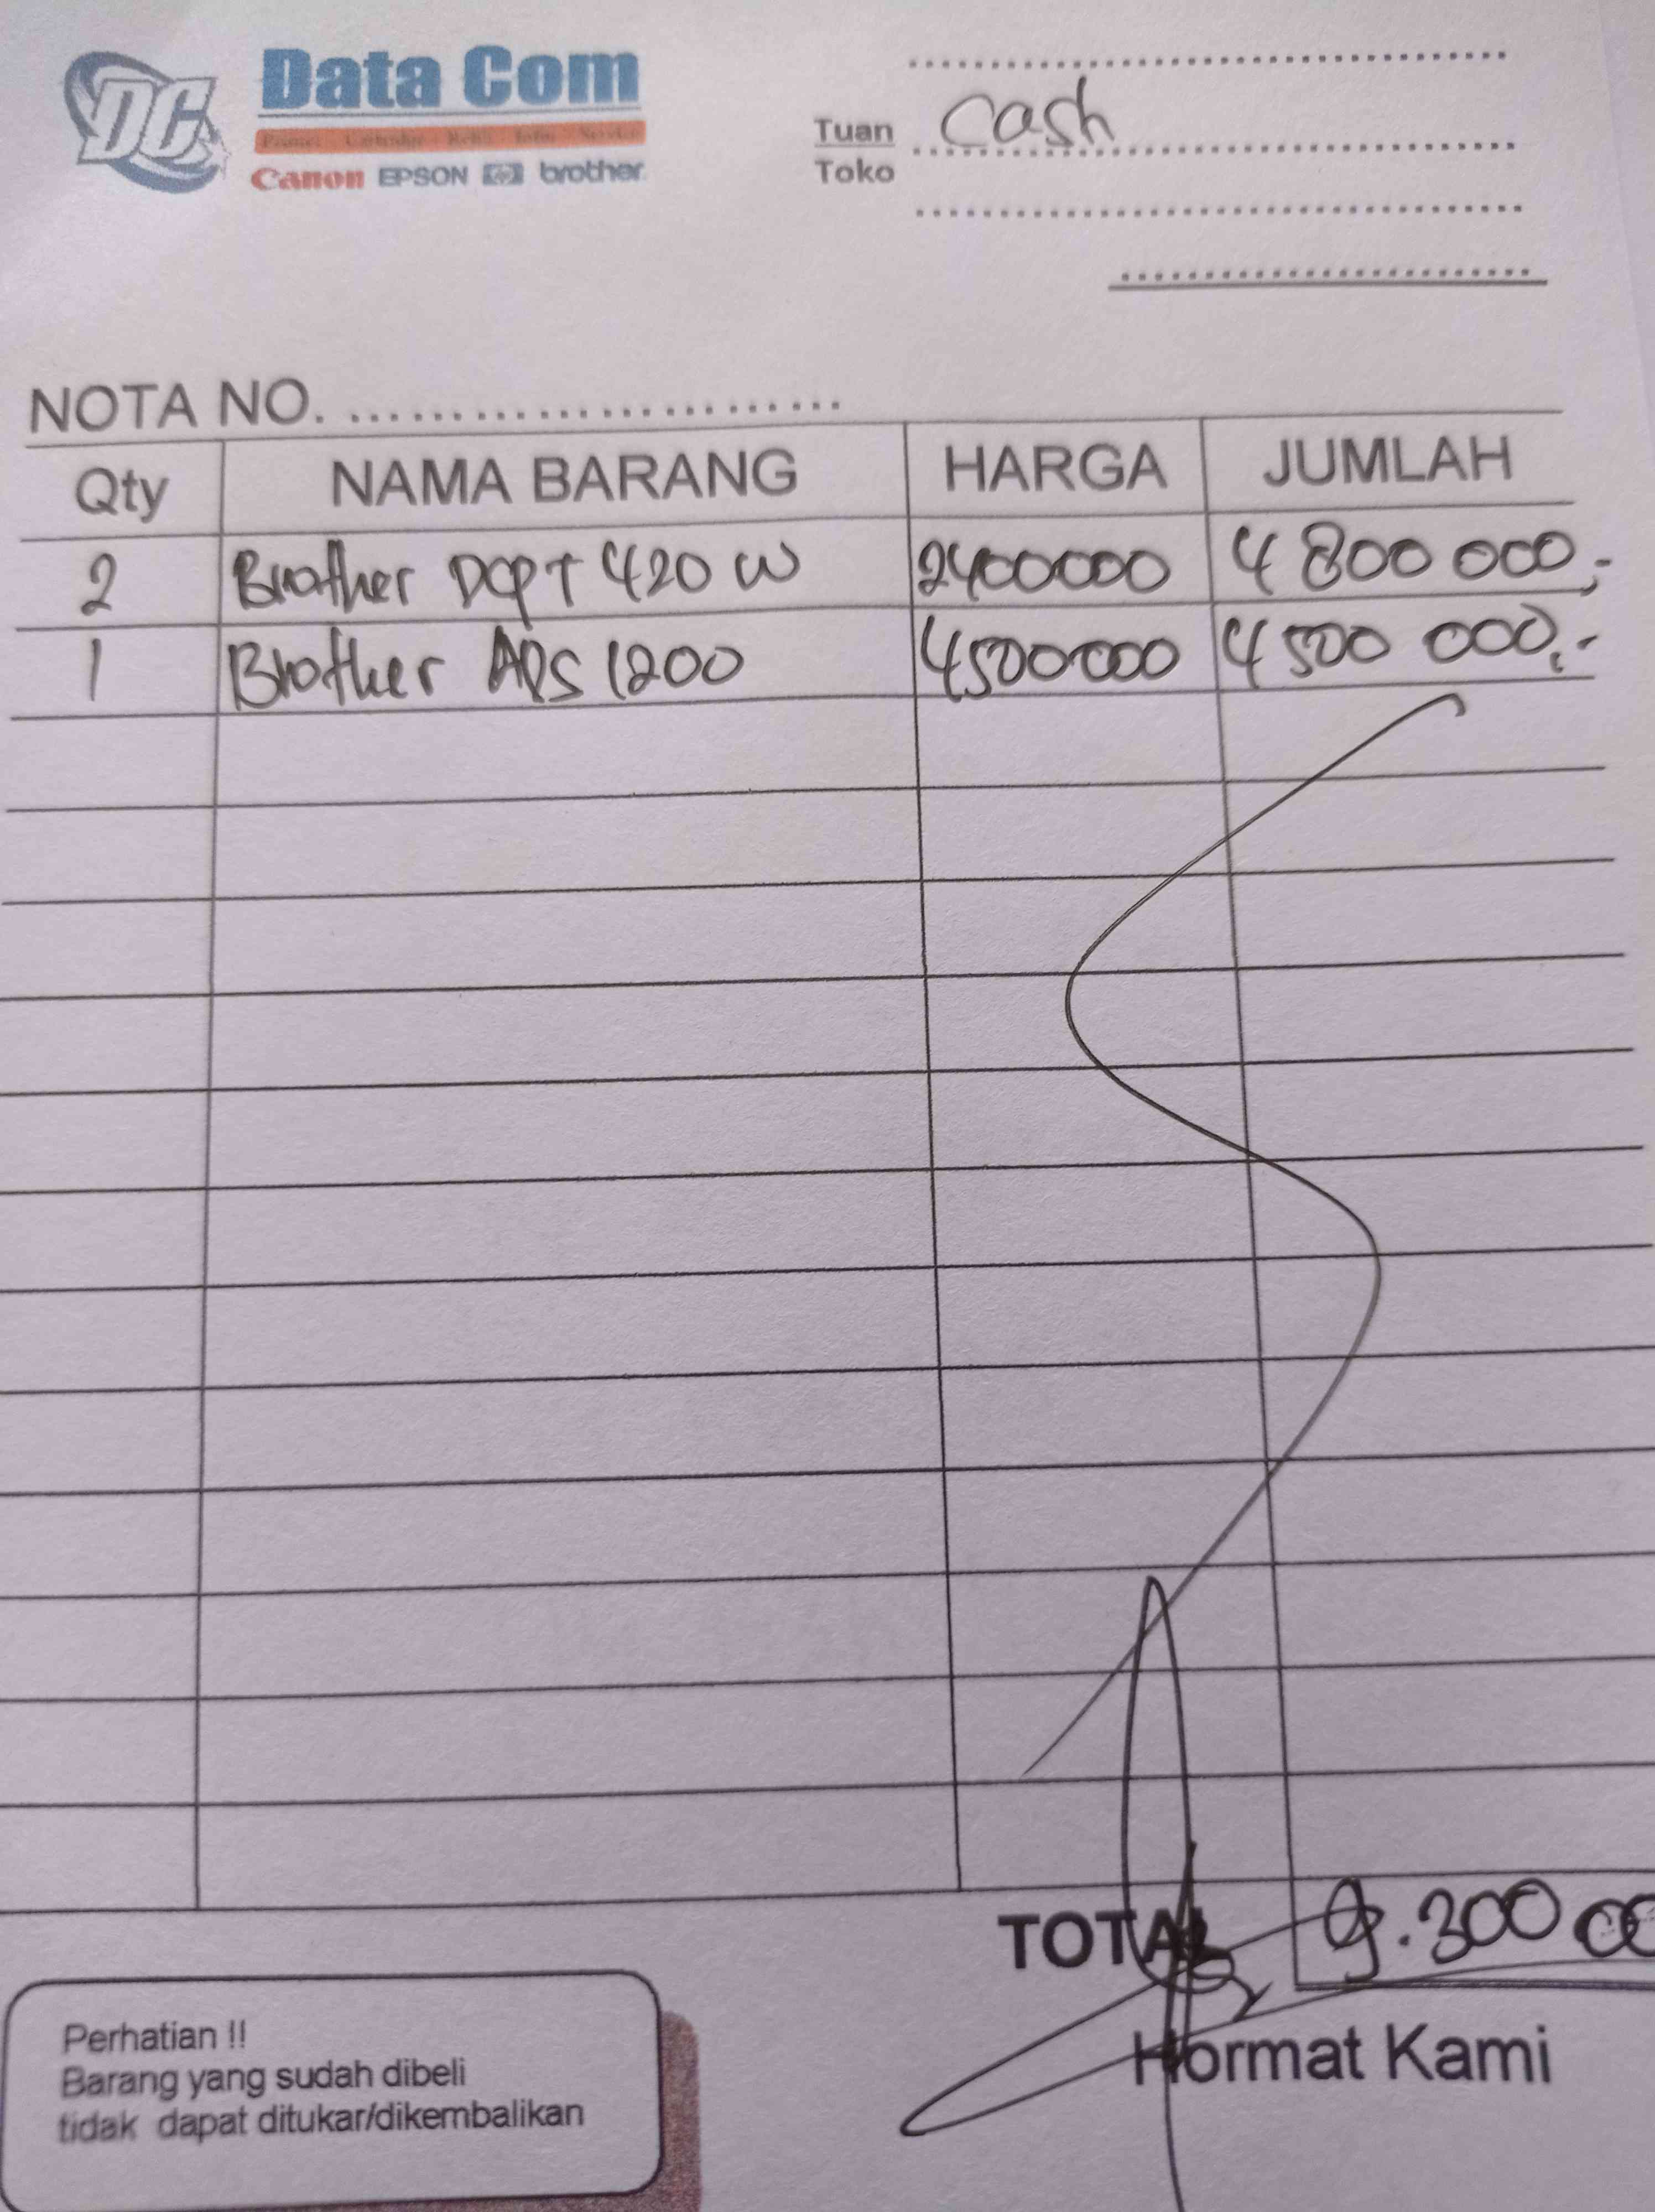 DC Data Com
Printer Cartridge Refill Infus Service
Canon EPSON hp brother
Tuan Cash
Toko
NOTA NO.
Qty NAMA BARANG HARGA JUMLAH
2 Brother DCPT 420 W 2400000 4 800 000,-
1 Brother ADS 1200 4500000 4 500 000,-
TOTAL 9.300 00
Hormat Kami
Perhatian !!
Barang yang sudah dibeli
tidak dapat ditukar/dikembalikan